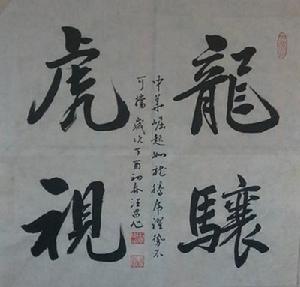 龍驤
虎視
中華崛起如龍騰虎躍勢不
可擋歲次丁酉初春汪昌心